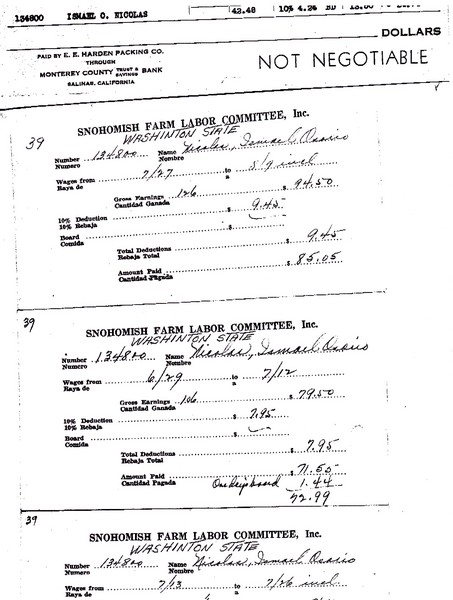 134800 ISMAEL O. NICOLAS 42.48 10% 4.24 BD
DOLLARS
PAID BY E. E. HARDEN PACKING CO.
THROUGH
MONTEREY COUNTY TRUST & SAVINGS BANK
SALINAS, CALIFORNIA
NOT NEGOTIABLE
39
SNOHOMISH FARM LABOR COMMITTEE, Inc.
WASHINTON STATE
Number 134800 Name Nicolas, Ismael Osorio
Numero Nombre
Wages from 7/27 to 8/9 incl
Raya de a
Gross Earnings 126 $ 94.50
Cantidad Ganada
10% Deduction $ 9.45
10% Rebaja
Board $
Comida
Total Deductions $ 9.45
Rebaja Total
Amount Paid $ 85.05
Cantidad Pagada
39
SNOHOMISH FARM LABOR COMMITTEE, Inc.
WASHINTON STATE
Number 134800 Name Nicolas, Ismael Osorio
Numero Nombre
Wages from 6/29 to 7/12
Raya de a
Gross Earnings 106 $ 79.50
Cantidad Ganada
10% Deduction $ 7.95
10% Rebaja
Board $
Comida
Total Deductions $ 7.95
Rebaja Total
Amount Paid $ 71.55
Cantidad Pagada One days board 1.44
72.99
39
SNOHOMISH FARM LABOR COMMITTEE, Inc.
WASHINTON STATE
Number 134800 Name Nicolas, Ismael Osorio
Numero Nombre
Wages from 7/13 to 7/26 incl
Raya de a